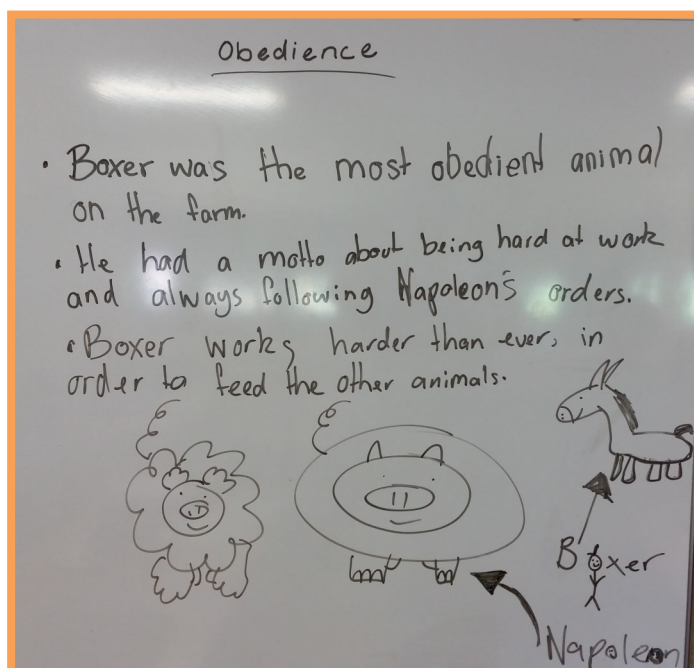 Obedience
• Boxer was the most obedient animal
on the farm.
• He had a motto about being hard at work
and always following Napoleon's orders.
• Boxer works harder than ever, in
order to feed the other animals.
Boxer
Napoleon